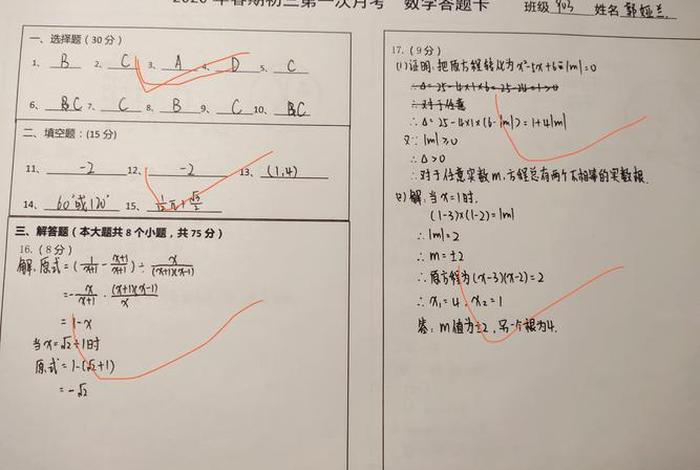 2020年春期初三第一次月考 数学答题卡 班级 903 姓名 郭娅兰
一、选择题（30分）
1、B 2、C 3、A 4、D 5、C
6、B C 7、C 8、B 9、C 10、B C
二、填空题：(15分)
11、-2 12、-2 13、(1,4)
14、60°或120° 15、
三、解答题（本大题共8个小题，共75分）
16.（8分）
解:原式=(1/(x+1) - (x+1)/(x+1)) ÷ x/((x+1)(x-1))
=-x/(x+1) · (x+1)(x-1)/x
=1-x
当x=√2+1时
原式=1-(√2+1)
=-√2
17.（9分）
(1)证明:把原方程转化为x²-5x+6-|m|=0
∴Δ=25-4×1×6=25-24=1>0
∴对于任意
∴Δ=25-4×1×(6-|m|)=1+4|m|
又∵|m|≥0
∴Δ>0
∴对于任意实数m,方程总有两个不相等的实数根.
2)解:当x=1时.
(1-3)×(1-2)=|m|
∴|m|=2
∴m=±2
∴原方程为(x-3)(x-2)=2
∴x₁=4,x₂=1
答:m值为±2,另一个根为4.